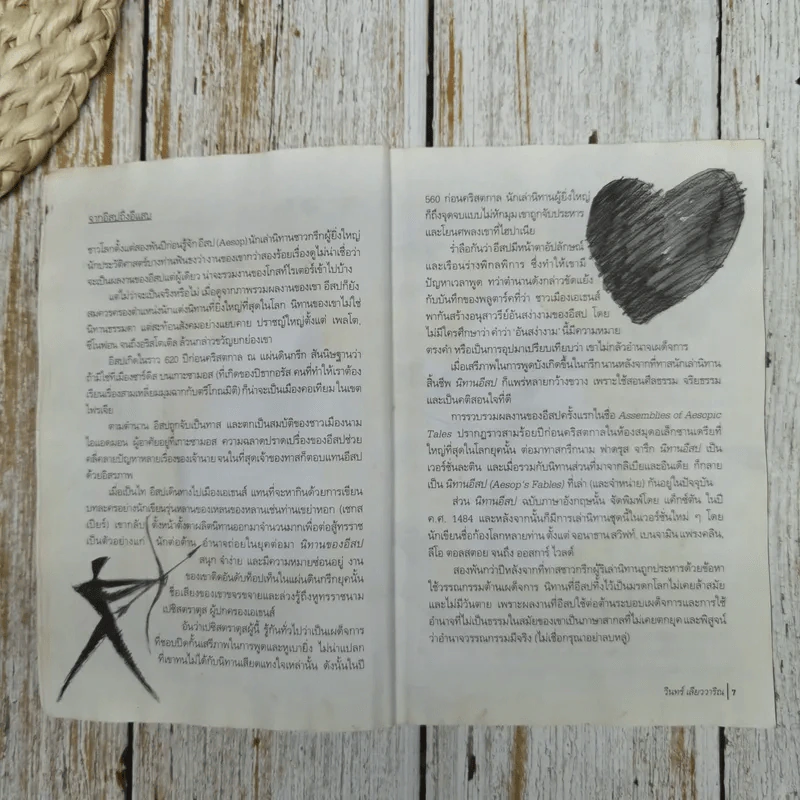 จากอีสปถึงอีแสบ
ชาวโลกตั้งแต่สองพันปีก่อนรู้จัก อีสป (Aesop) นักเล่านิทานชาวกรีกผู้ยิ่งใหญ่
นักประวัติศาสตร์บางท่านฟันธงว่า งานของเขากว่าสองร้อยเรื่องดูไม่น่าเชื่อว่า
จะเป็นผลงานของอีสปแต่ผู้เดียว น่าจะรวมงานของโกสท์ไรเตอร์เข้าไปบ้าง
แต่ไม่ว่าจะเป็นจริงหรือไม่ เมื่อดูจากภาพรวมผลงานของเขา อีสปก็ยัง
สมควรครองตำแหน่งนักแต่งนิทานที่ยิ่งใหญ่ที่สุดในโลก นิทานของเขาไม่ใช่
นิทานธรรมดา แต่สะท้อนสังคมอย่างแยบคาย ปราชญ์ใหญ่ตั้งแต่ เพลโต,
ซีโนฟอน จนถึงอริสโตเติล ล้วนกล่าวขวัญยกย่องเขา
อีสปเกิดในราว 620 ปีก่อนคริสตกาล ณ แผ่นดินกรีก สันนิษฐานว่า
ถ้ามิใช่ที่เมืองซาร์ดิส บนเกาะซามอส (ที่เกิดของปีธากอรัส คนที่ทำให้เราต้อง
เรียนเรื่องสามเหลี่ยมมุมฉากกับตรีโกณมิติ) ก็น่าจะเป็นเมืองคอเทียม ในเขต
ไฟรเจีย
ตามตำนาน อีสปถูกจับเป็นทาส และตกเป็นสมบัติของชาวเมืองนาม
ไอแอดมอน ผู้อาศัยอยู่ที่เกาะซามอส ความฉลาดปราดเปรื่องของอีสปช่วย
คลี่คลายปัญหาหลายเรื่องของเจ้านาย จนในที่สุดเจ้าของทาสก็ตอบแทนอีสป
ด้วยอิสรภาพ
เมื่อเป็นไท อีสปเดินทางไปเมืองเอเธนส์ แทนที่จะหากินด้วยการเขียน
บทละครอย่างนักเขียนรุ่นหลานของเหลนของหลานเช่นท่านเขย่าหอก (เชกส
เปียร์) เขากลับตั้งหน้าตั้งตาผลิตนิทานออกมาจำนวนมากเพื่อต่อสู้ทรราช
เป็นตัวอย่างแก่ นักต่อต้าน อำนาจถ่อยในยุคต่อมา นิทานของอีสป
สนุก จำง่าย และมีความหมายซ่อนอยู่ งาน
ของเขาติดอันดับท็อปเท็นในแผ่นดินกรีกยุคนั้น
ชื่อเสียงของเขาขจรขจายและล่วงรู้ถึงหูทรราชนาม
เปซิสตราตุส ผู้ปกครองเอเธนส์
อันว่าเปซิสตราตุสผู้นี้ รู้กันทั่วไปว่าเป็นเผด็จการ
ที่ชอบปิดกั้นเสรีภาพในการพูดและหูเบายิ่ง ไม่น่าแปลก
ที่เขาทนไม่ได้กับนิทานเสียดแทงใจเหล่านั้น ดังนั้นในปี
560 ก่อนคริสตกาล นักเล่านิทานผู้ยิ่งใหญ่
ก็ถึงจุดจบแบบไม่หักมุม เขาถูกจับประหาร
และโยนศพลงเขาที่ไฮปาเนีย
ร่ำลือกันว่า อีสปมีหน้าตาอัปลักษณ์
และเรือนร่างพิกลพิการ ซึ่งทำให้เขามี
ปัญหาเวลาพูด ทว่าตำนานดังกล่าวขัดแย้ง
กับบันทึกของพลูตาร์คที่ว่า ชาวเมืองเอเธนส์
พากันสร้างอนุสาวรีย์อันสง่างามของอีสป โดย
ไม่มีใครศึกษาว่า คำว่า 'อันสง่างาม' นี้มีความหมาย
ตรงคำ หรือเป็นการอุปมาเปรียบเทียบว่า เขาไม่กลัวอำนาจเผด็จการ
เมื่อเสรีภาพในการพูดบังเกิดขึ้นในกรีกนานหลังจากที่ทาสนักเล่านิทาน
สิ้นชีพ นิทานอีสป ก็แพร่หลายกว้างขวาง เพราะใช้สอนศีลธรรม จริยธรรม
และเป็นคติสอนใจที่ดี
การรวบรวมผลงานของอีสปครั้งแรกในชื่อ Assemblies of Aesopic
Tales ปรากฏราวสามร้อยปีก่อนคริสตกาลในห้องสมุดอเล็กซานเดรียที่
ใหญ่ที่สุดในโลกยุคนั้น ต่อมาทาสกรีกนาม ฟาดรุส จาริก นิทานอีสป เป็น
เวอร์ชั่นละติน และเมื่อรวมกับนิทานส่วนที่มาจากลิเบียและอินเดีย ก็กลาย
เป็น นิทานอีสป (Aesop's Fables) ที่เล่า (และจำหน่าย) กันอยู่ในปัจจุบัน
ส่วน นิทานอีสป ฉบับภาษาอังกฤษนั้น จัดพิมพ์โดย แค็กซ์ตัน ในปี
ค.ศ. 1484 และหลังจากนั้นก็มีการเล่านิทานชุดนี้ในเวอร์ชั่นใหม่ ๆ โดย
นักเขียนชื่อก้องโลกหลายท่าน ตั้งแต่ จอนาธาน สวิฟท์, เบนจามิน แฟรงคลิน,
ลีโอ ตอลสตอย จนถึง ออสการ์ ไวลด์
สองพันกว่าปีหลังจากที่ทาสชาวกรีกผู้ริเล่านิทานถูกประหารด้วยข้อหา
ใช้วรรณกรรมต้านเผด็จการ นิทานที่อีสปทิ้งไว้เป็นมรดกโลกไม่เคยล้าสมัย
และไม่มีวันตาย เพราะผลงานที่อีสปใช้ต่อต้านระบอบเผด็จการและการใช้
อำนาจที่ไม่เป็นธรรมในสมัยของเขาเป็นภาษาสากลที่ไม่เคยตกยุค และพิสูจน์
ว่าอำนาจวรรณกรรมมีจริง (ไม่เชื่อกรุณาอย่าลบหลู่)
วินทร์ เลียววาริณ 7